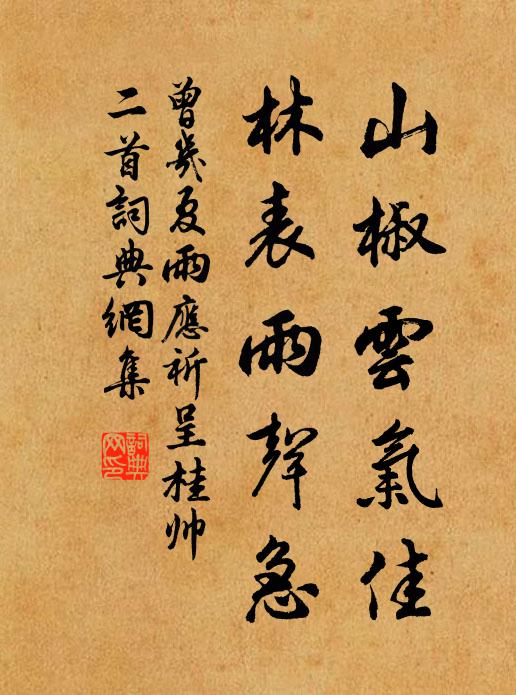 山椒雲氣佳
林表雨聲急
曾幾夏雨應祈呈桂帅
二首詞典網集
詞典
网印